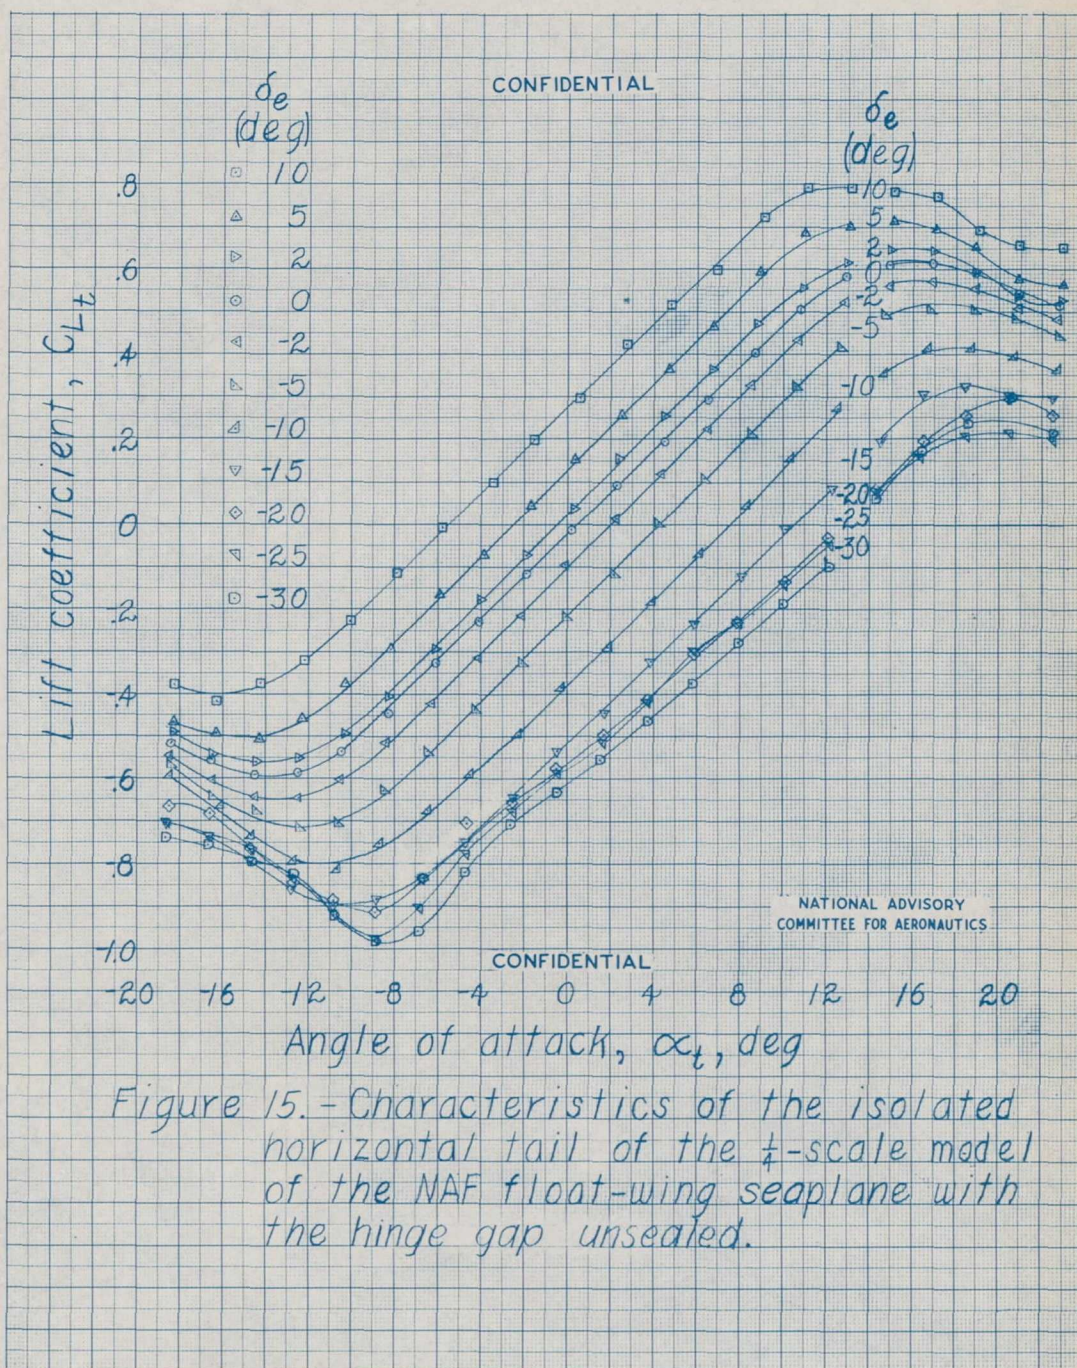 CONFIDENTIAL
δe
(deg)
10
5
2
0
-2
-5
-10
-15
-20
-25
-30
δe
(deg)
10
5
2
0
-2
-5
-10
-15
-20
-25
-30
Lift coefficient, CLt
.8
.6
.4
.2
0
-.2
-.4
-.6
-.8
-1.0
NATIONAL ADVISORY
COMMITTEE FOR AERONAUTICS
CONFIDENTIAL
-20 -16 -12 -8 -4 0 4 8 12 16 20
Angle of attack, ∝t, deg
Figure 15.-Characteristics of the isolated
horizontal tail of the 1/4-scale model
of the NAF float-wing seaplane with
the hinge gap unsealed.